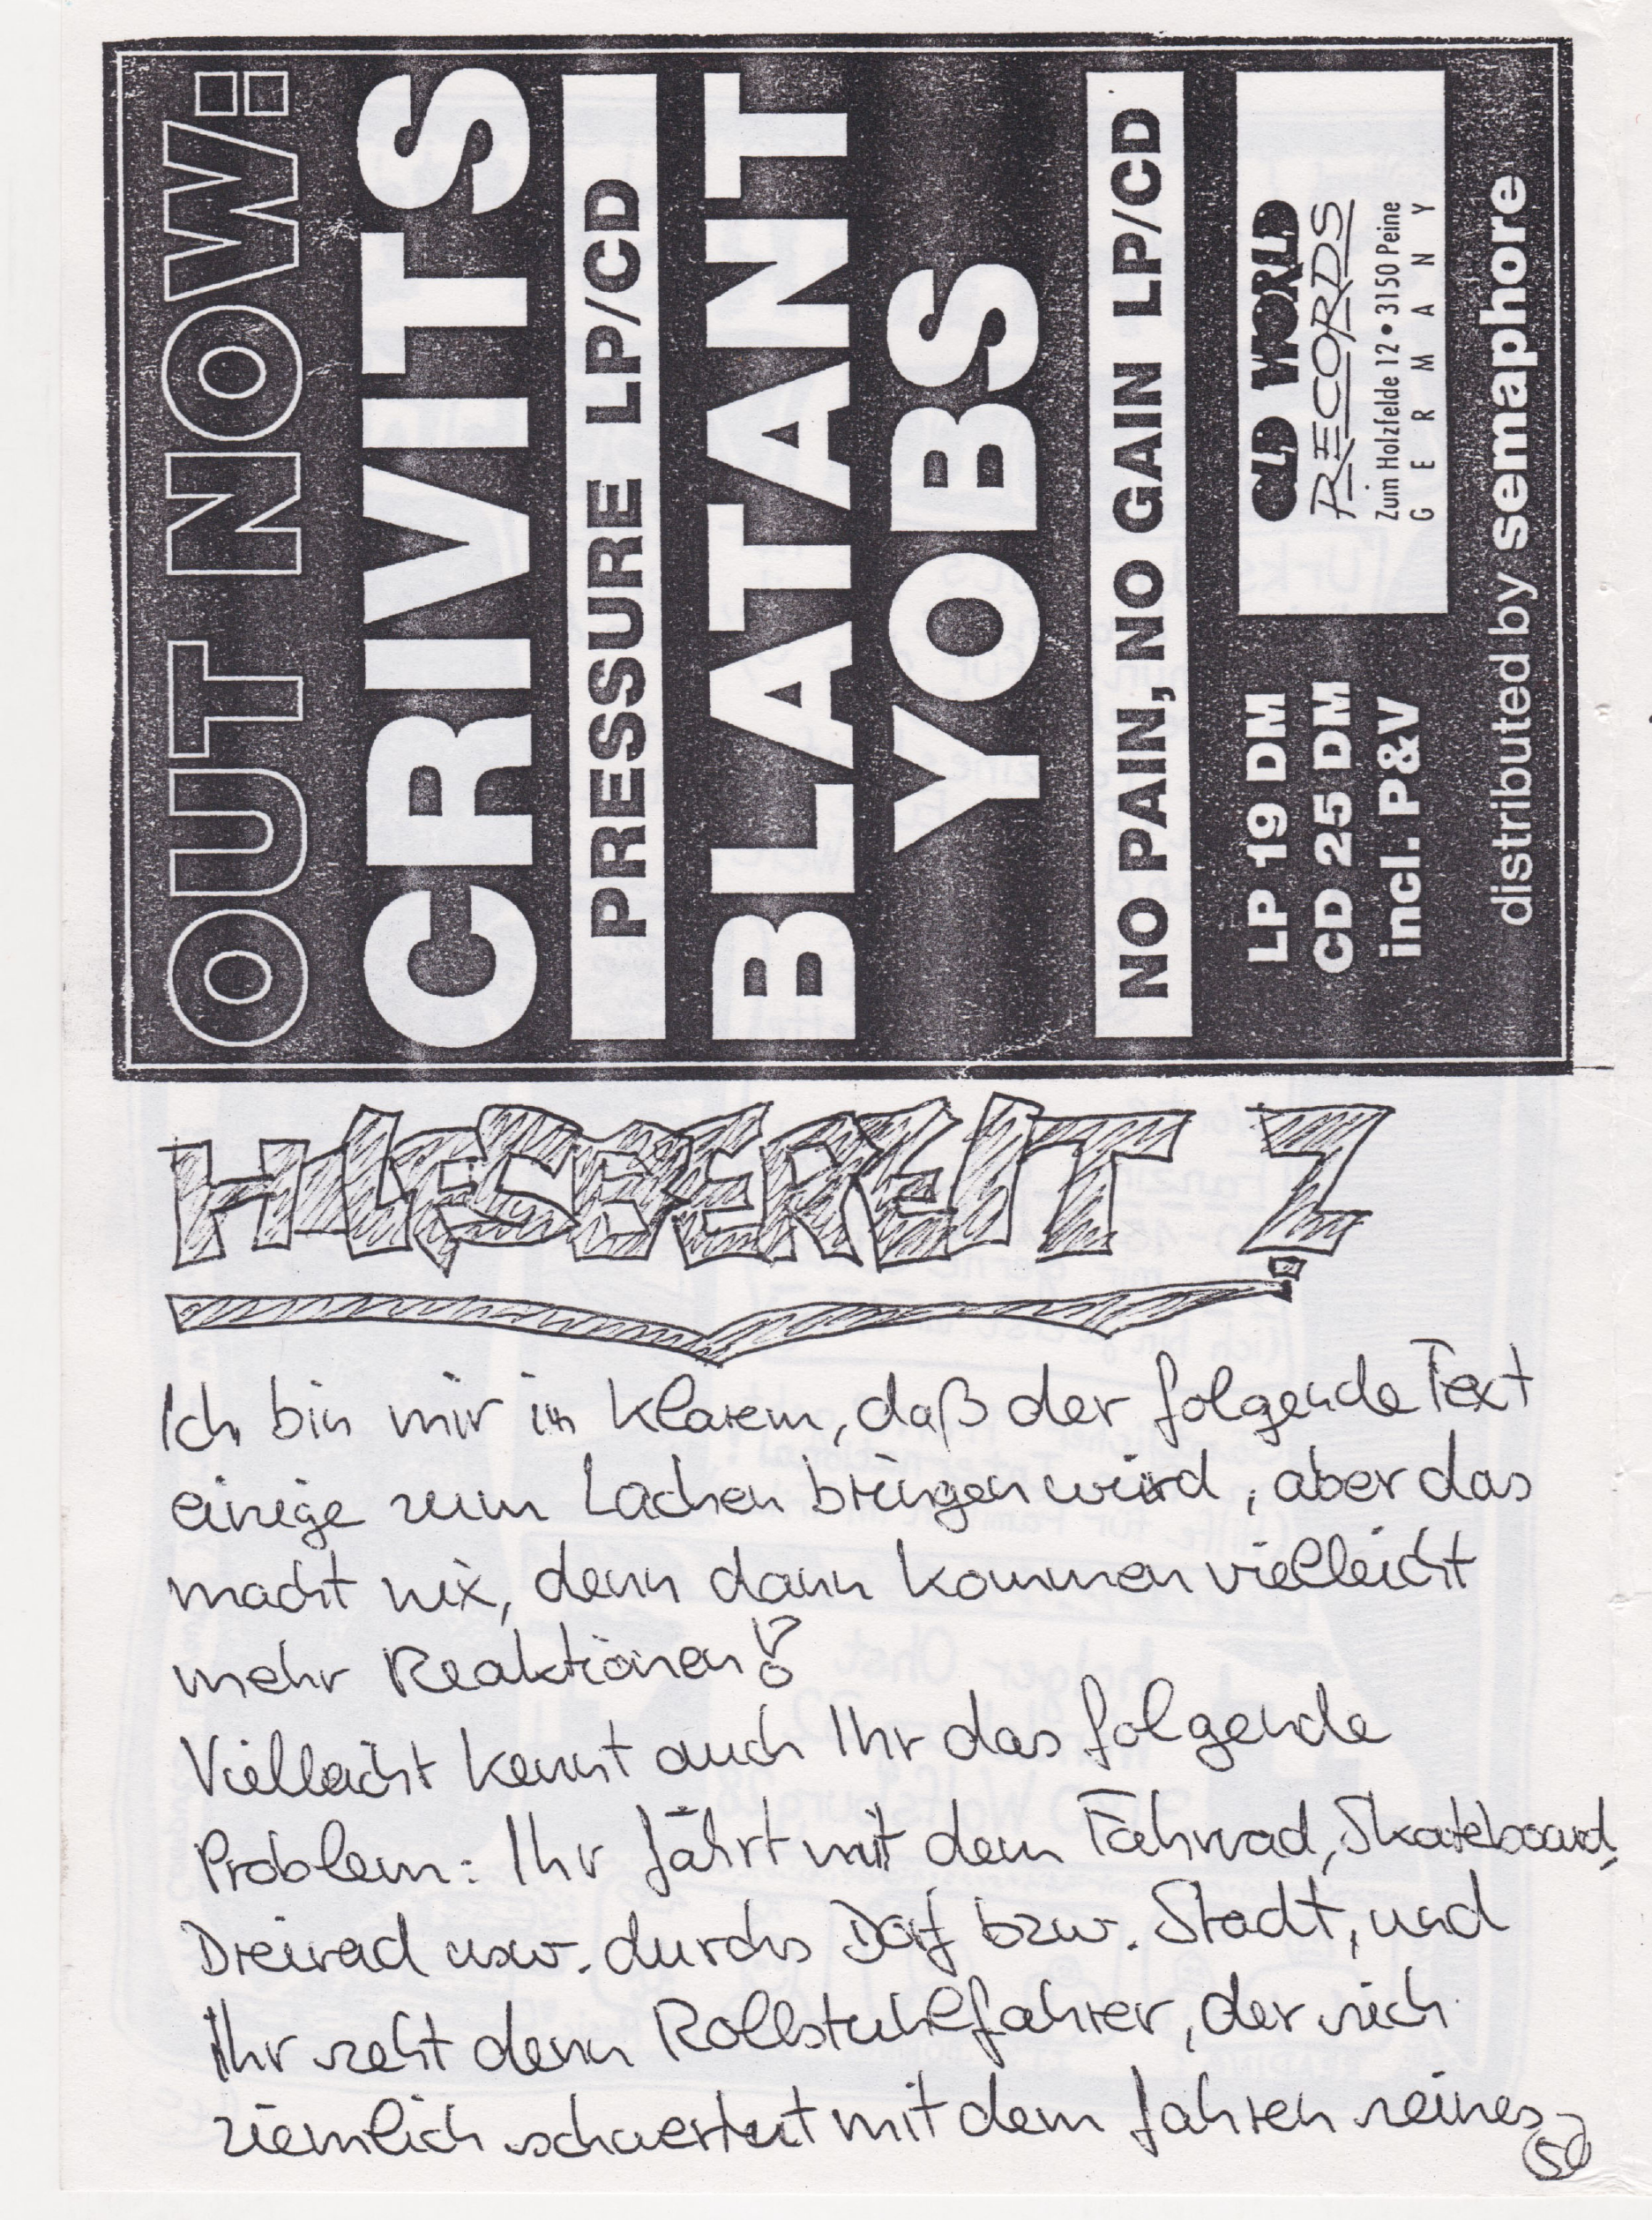 OUT NOW:
CRIVITS
PRESSURE LP/CD
BLATANT
YOBS
NO PAIN, NO GAIN LP/CD
LP 19 DM
CD 25 DM
incl. P&V
OLD WORLD
RECORDS
Zum Holzfelde 12 • 3150 Peine
GERMANY
distributed by semaphore
HILFSBEREIT ?
Ich bin mir im Klarem, daß der folgende Text
einige zum Lachen bringen wird, aber das
macht nix, denn dann kommen vielleicht
mehr Reaktionen!?
Vielleicht kennt auch Ihr das folgende
Problem: Ihr fährt mit dem Fahrrad, Skateboard,
Dreirad usw. durchs Dorf bzw. Stadt, und
Ihr seht denn Rollstuhlfahrer, der sich
ziemlich schwertut mit dem fahren seines